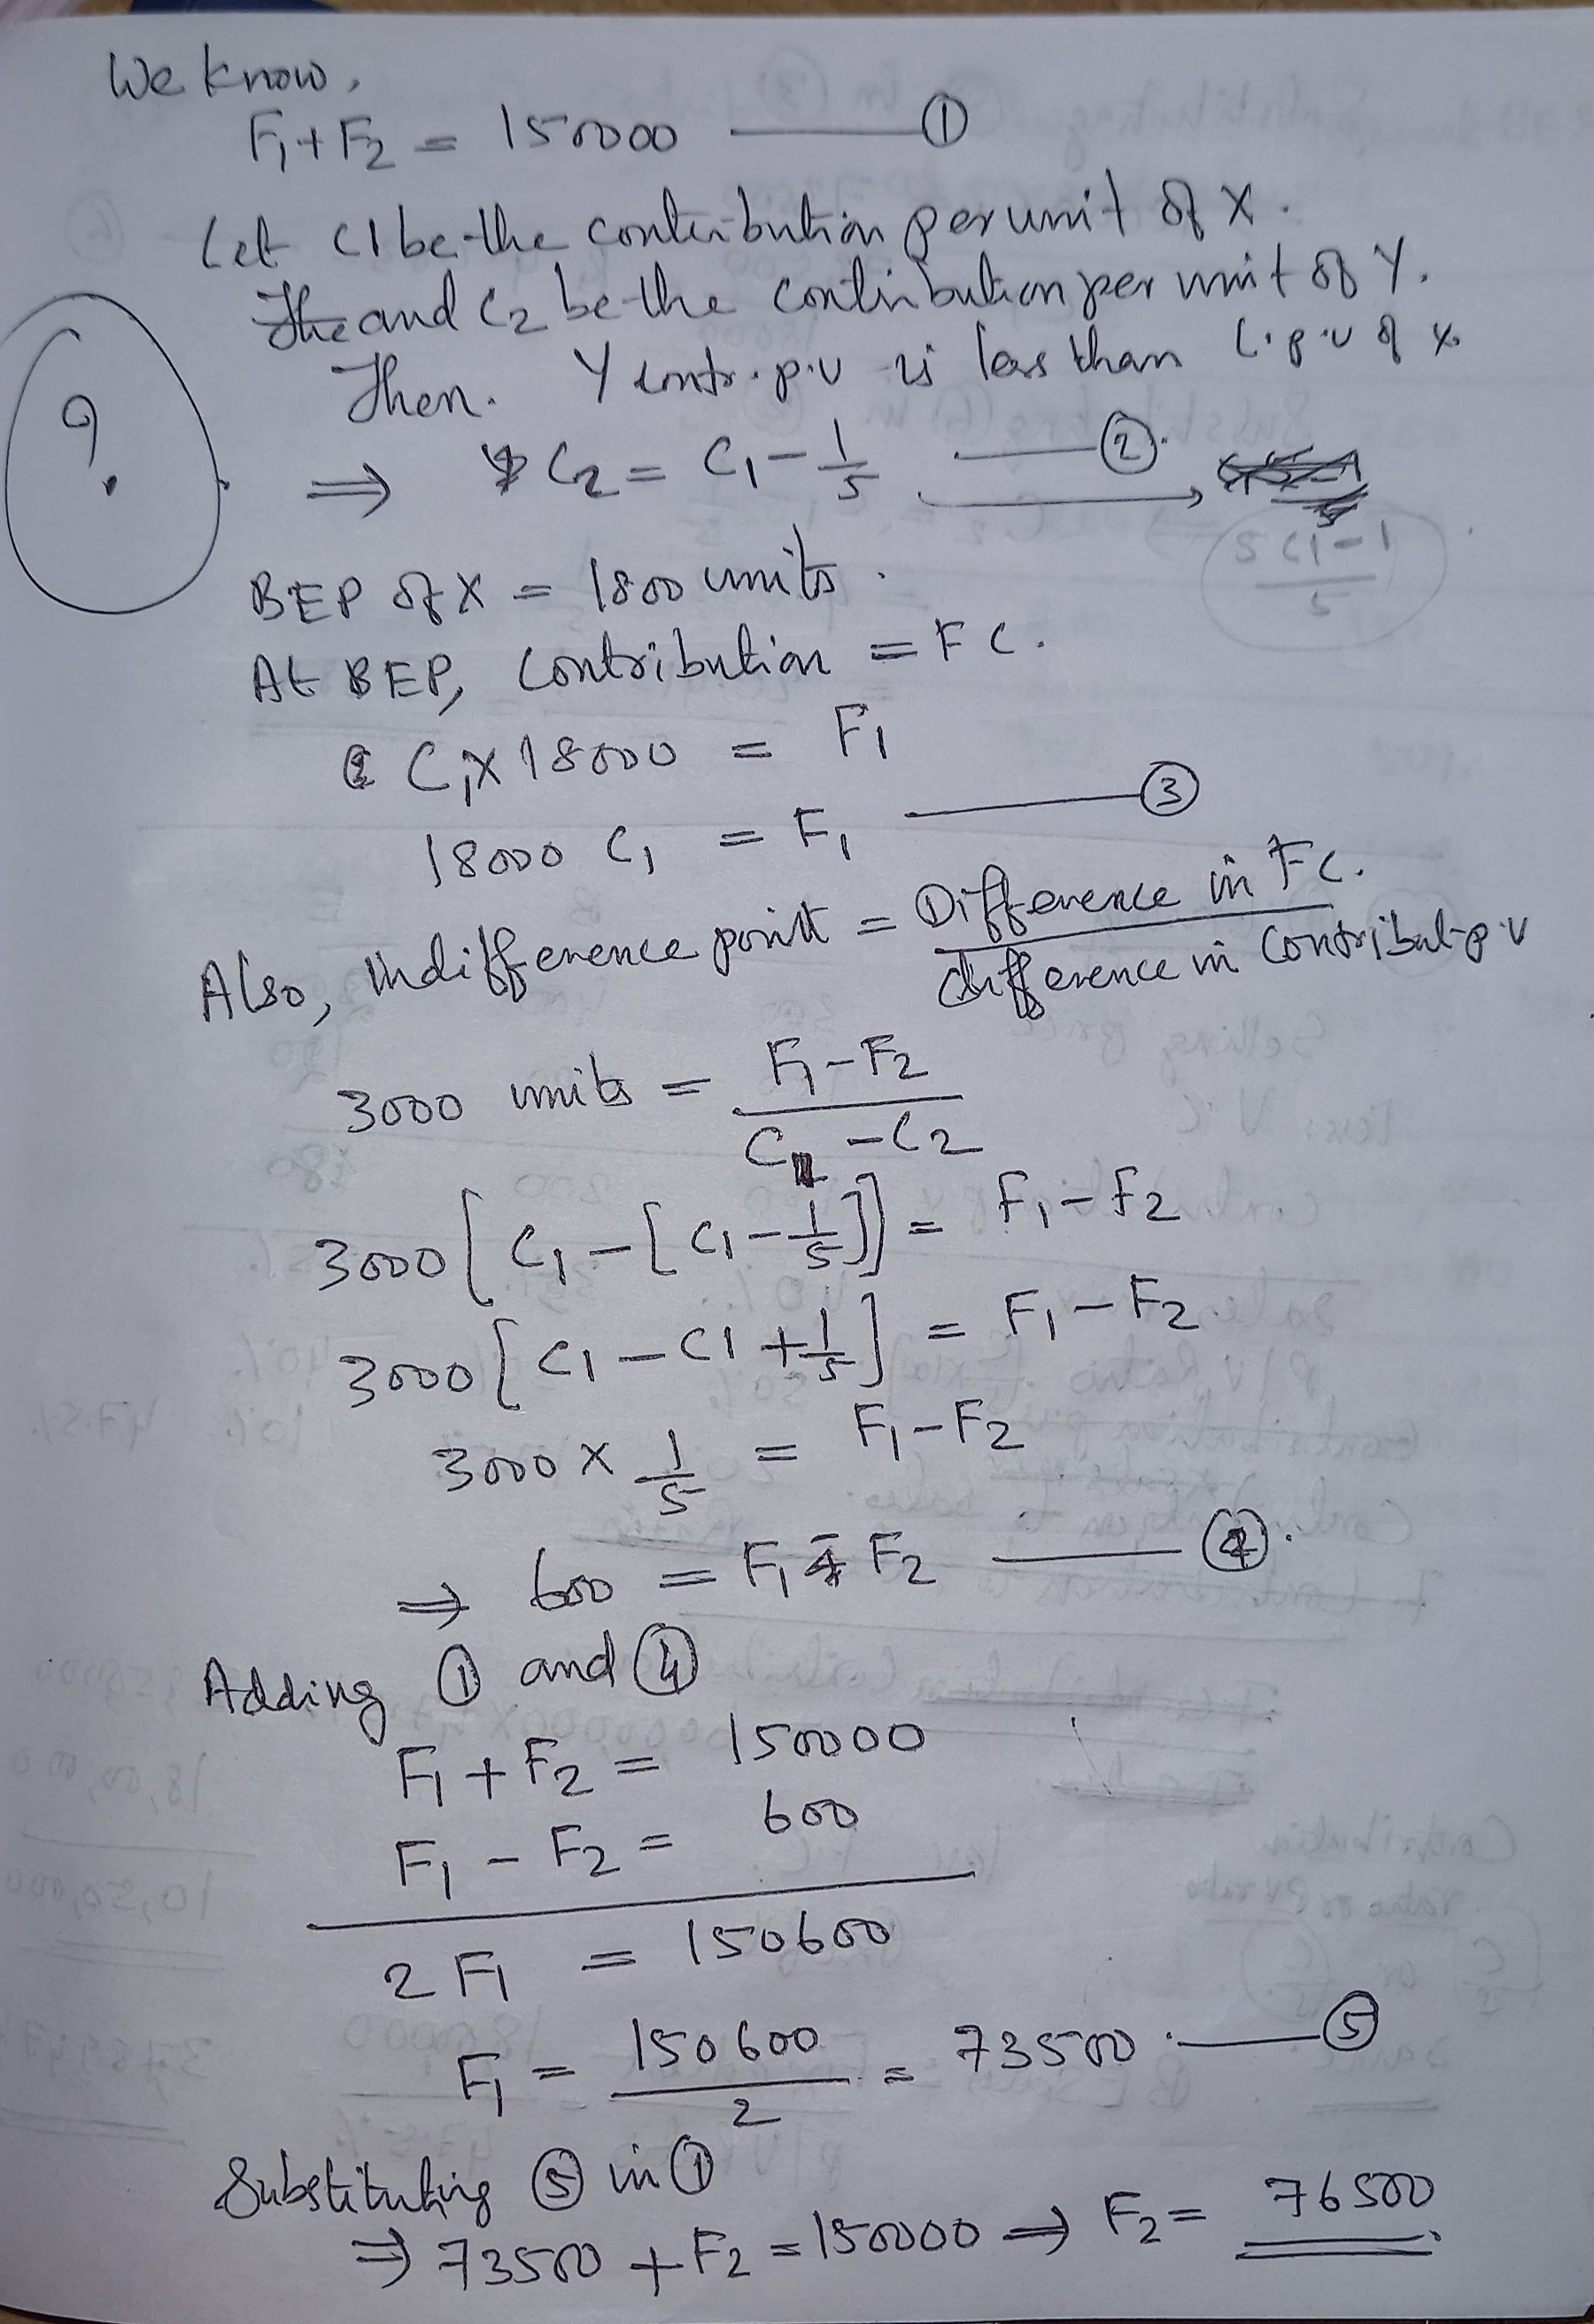 We know,
F1 + F2 = 150000 —— ①
Let C1 be the contribution per unit of X.
The and C2 be the contribution per unit of Y.
Then. Y contr. p.u is less than C.p.u of X.
?
⇒ C2 = C1 - 1/5 —— ②.
(5C1 - 1)/5
BEP of X = 1800 units.
At BEP, Contribution = FC.
C1 X 18000 = F1
18000 C1 = F1 —— ③
Also, indifference point = Difference in FC. / difference in Contribut-p.u
3000 units = (F1 - F2) / (C1 - C2)
3000 [C1 - [C1 - 1/5]] = F1 - F2
3000 [C1 - C1 + 1/5] = F1 - F2.
3000 X 1/5 = F1 - F2
⇒ 600 = F1 - F2 —— ④.
Adding ① and ④
F1 + F2 = 150000
F1 - F2 = 600
2 F1 = 150600
F1 = 150600/2 = 73500. —— ⑤
Substituting ⑤ in ①
⇒ 73500 + F2 = 150000 ⇒ F2 = 76500.